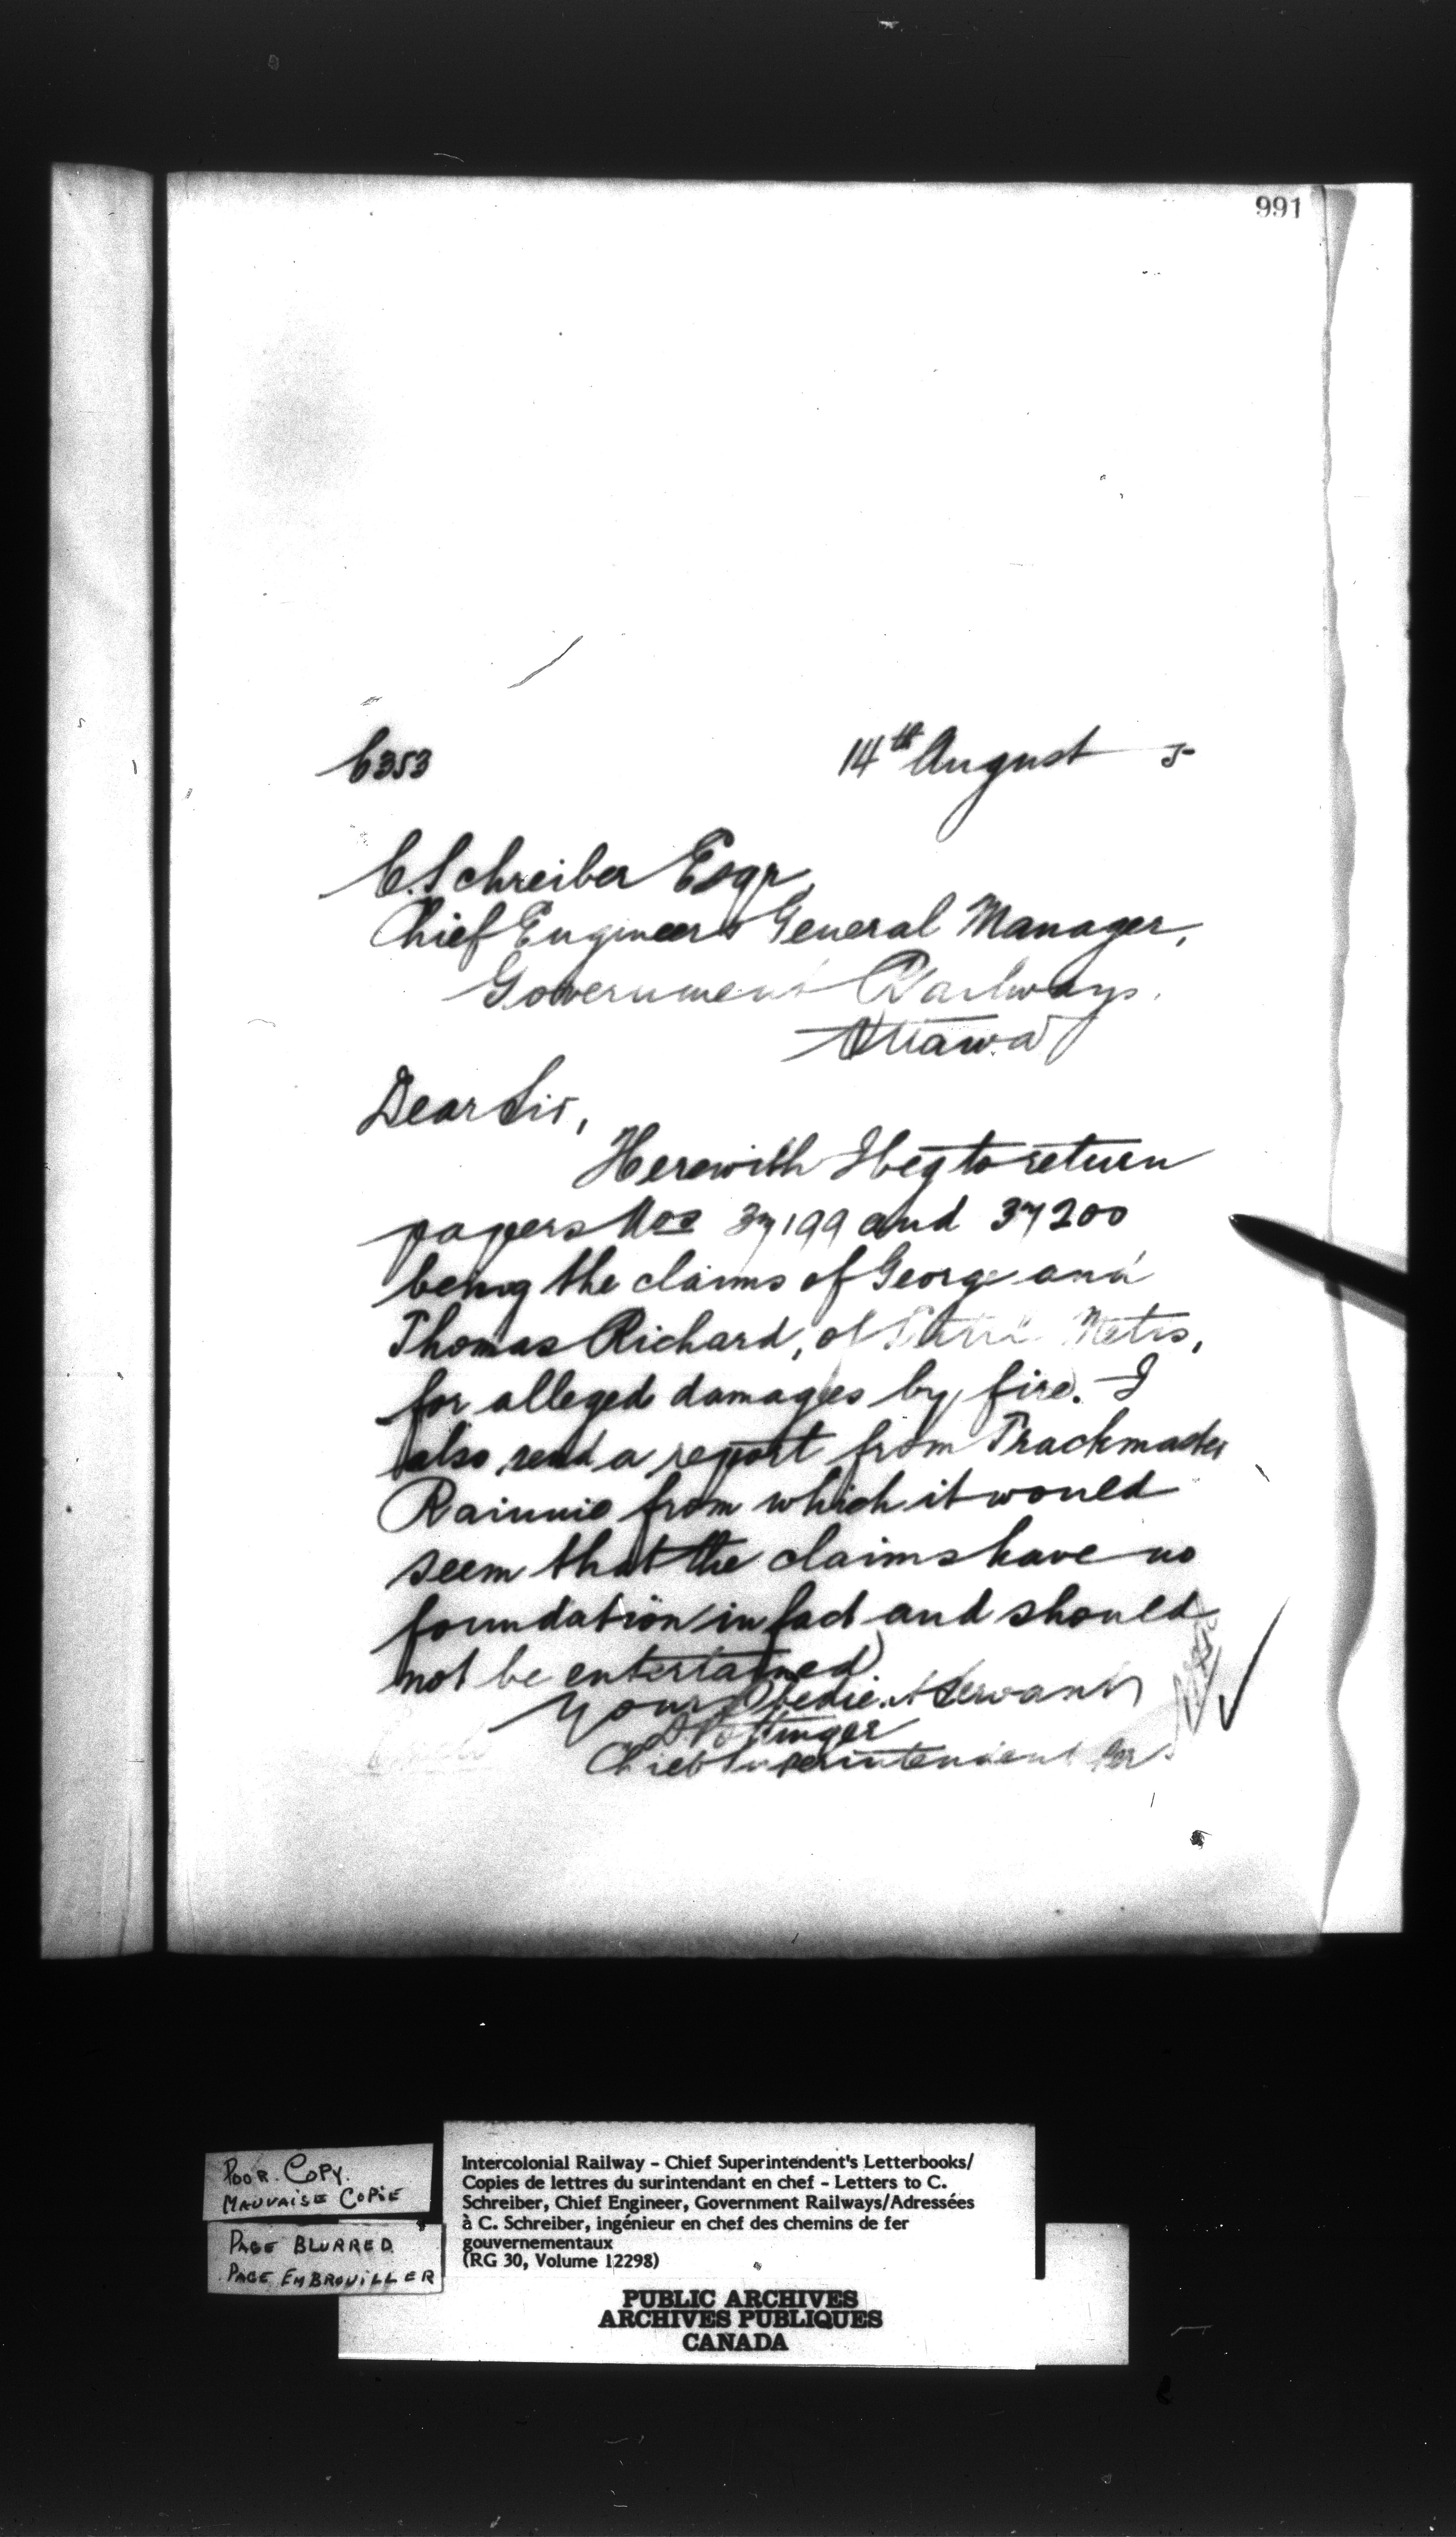 991
C353 14th August 5
C. Schreiber Esqr,
Chief Engineer & General Manager,
Government Railways.
Ottawa
Dear Sir,
Herewith I beg to return
papers Nos 37199 and 37200
being the claims of George and
Thomas Richard, of Metis,
for alleged damages by fire. I
also send a report from Trackmaster
Rainnie from which it would
seem that the claims have no
foundation in fact and should
not be entertained
Your Obedient Servant
D Pottinger
Chief Superintendent Per
POOR. COPY.
MAUVAISE COPIE
PAGE BLURRED
PAGE EMBROUILLER
Intercolonial Railway - Chief Superintendent's Letterbooks/
Copies de lettres du surintendant en chef - Letters to C.
Schreiber, Chief Engineer, Government Railways/Adressées
à C. Schreiber, ingénieur en chef des chemins de fer
gouvernementaux
(RG 30, Volume 12298)
PUBLIC ARCHIVES
ARCHIVES PUBLIQUES
CANADA